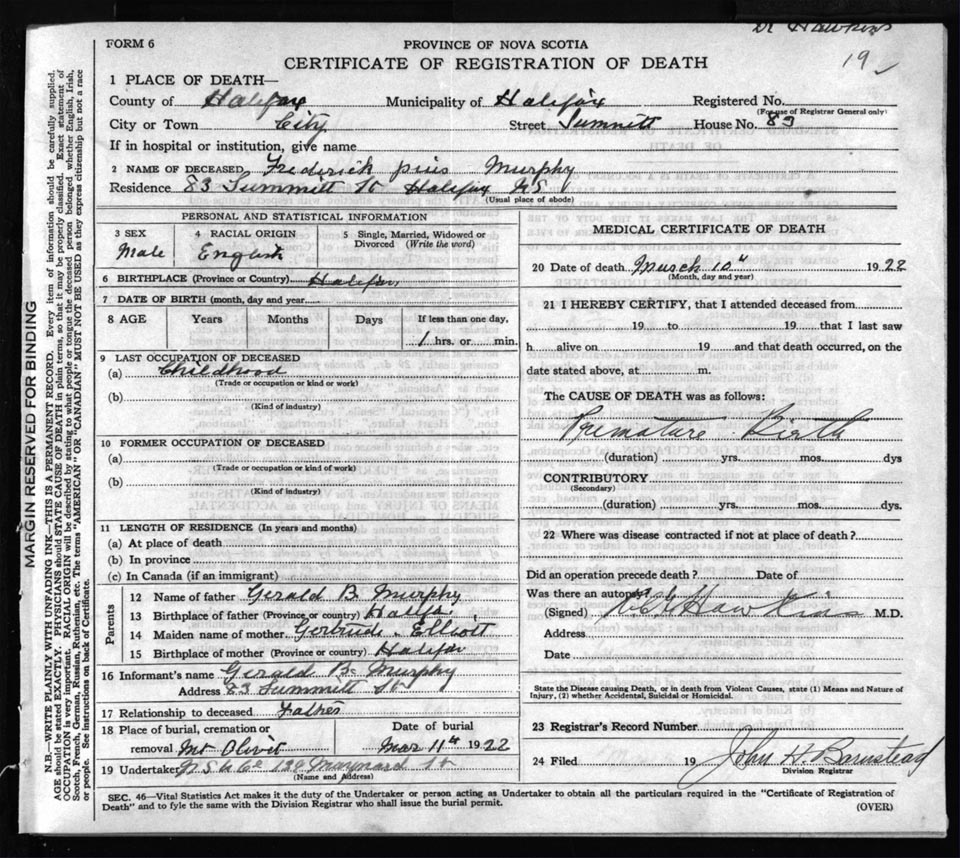 Dr Hawkins
19
FORM 6
PROVINCE OF NOVA SCOTIA
CERTIFICATE OF REGISTRATION OF DEATH
1 PLACE OF DEATH—
County of Halifax Municipality of Halifax Registered No.
(For use of Registrar General only)
City or Town City Street Summitt House No. 83
If in hospital or institution, give name
2 NAME OF DECEASED Frederick pius Murphy
Residence 83 Summitt St Halifax NS
(Usual place of abode)
PERSONAL AND STATISTICAL INFORMATION
3 SEX
Male
4 RACIAL ORIGIN
English
5 Single, Married, Widowed or
Divorced (Write the word)
6 BIRTHPLACE (Province or Country) Halifax
7 DATE OF BIRTH (month, day and year
8 AGE Years Months Days If less than one day,
1 hrs. or min.
9 LAST OCCUPATION OF DECEASED
(a) Childhood
(Trade or occupation or kind or work)
(b)
(Kind of industry)
10 FORMER OCCUPATION OF DECEASED
(a)
(Trade or occupation or kind of work)
(b)
(Kind of industry)
11 LENGTH OF RESIDENCE (In years and months)
(a) At place of death
(b) In province
(c) In Canada (if an immigrant)
Parents
12 Name of father Gerald B Murphy
13 Birthplace of father (Province or country) Halifax
14 Maiden name of mother Gertrude Elliott
15 Birthplace of mother (Province or country) Halifax
16 Informant's name Gerald B Murphy
Address 83 Summitt St
17 Relationship to deceased Father
18 Place of burial, cremation or
removal Mt Olivit
Date of burial
Mar 11th 1922
19 Undertaker N S U Co 129 Maynard St
(Name and Address)
MEDICAL CERTIFICATE OF DEATH
20 Date of death March 10" 1922
(Month, day and year)
21 I HEREBY CERTIFY, that I attended deceased from
19 to 19 that I last saw
h alive on 19 and that death occurred, on the
date stated above, at m.
The CAUSE OF DEATH was as follows:
Premature Birth
(duration) yrs. mos. dys
CONTRIBUTORY
(Secondary)
(duration) yrs. mos. dys.
22 Where was disease contracted if not at place of death?
Did an operation precede death? Date of
Was there an autopsy?
(Signed) Hawkins M.D.
Address
Date
State the Disease causing Death, or in death from Violent Causes, state (1) Means and Nature of
Injury, (2) whether Accidental, Suicidal or Homicidal.
23 Registrar's Record Number
24 Filed 19 John H. Barnstead
Division Registrar
SEC. 46—Vital Statistics Act makes it the duty of the Undertaker or person acting as Undertaker to obtain all the particulars required in the "Certificate of Registration of
Death" and to fyle the same with the Division Registrar who shall issue the burial permit. (OVER)
MARGIN RESERVED FOR BINDING
N.B.—WRITE PLAINLY WITH UNFADING INK—THIS IS A PERMANENT RECORD. Every item of information should be carefully supplied.
AGE should be stated EXACTLY. PHYSICIANS should STATE CAUSE OF DEATH in plain terms, so that it may be properly classified. Exact statement of
OCCUPATION is very important. RACIAL ORIGIN will be described by stating to what people or tongue the deceased person belonged whether English, Irish,
Scotch, French, German, Russian, Ruthenian, etc. The terms "AMERICAN" OR "CANADIAN" MUST NOT BE USED as they express citizenship but not a race
or people. See instructions on back of Certificate.